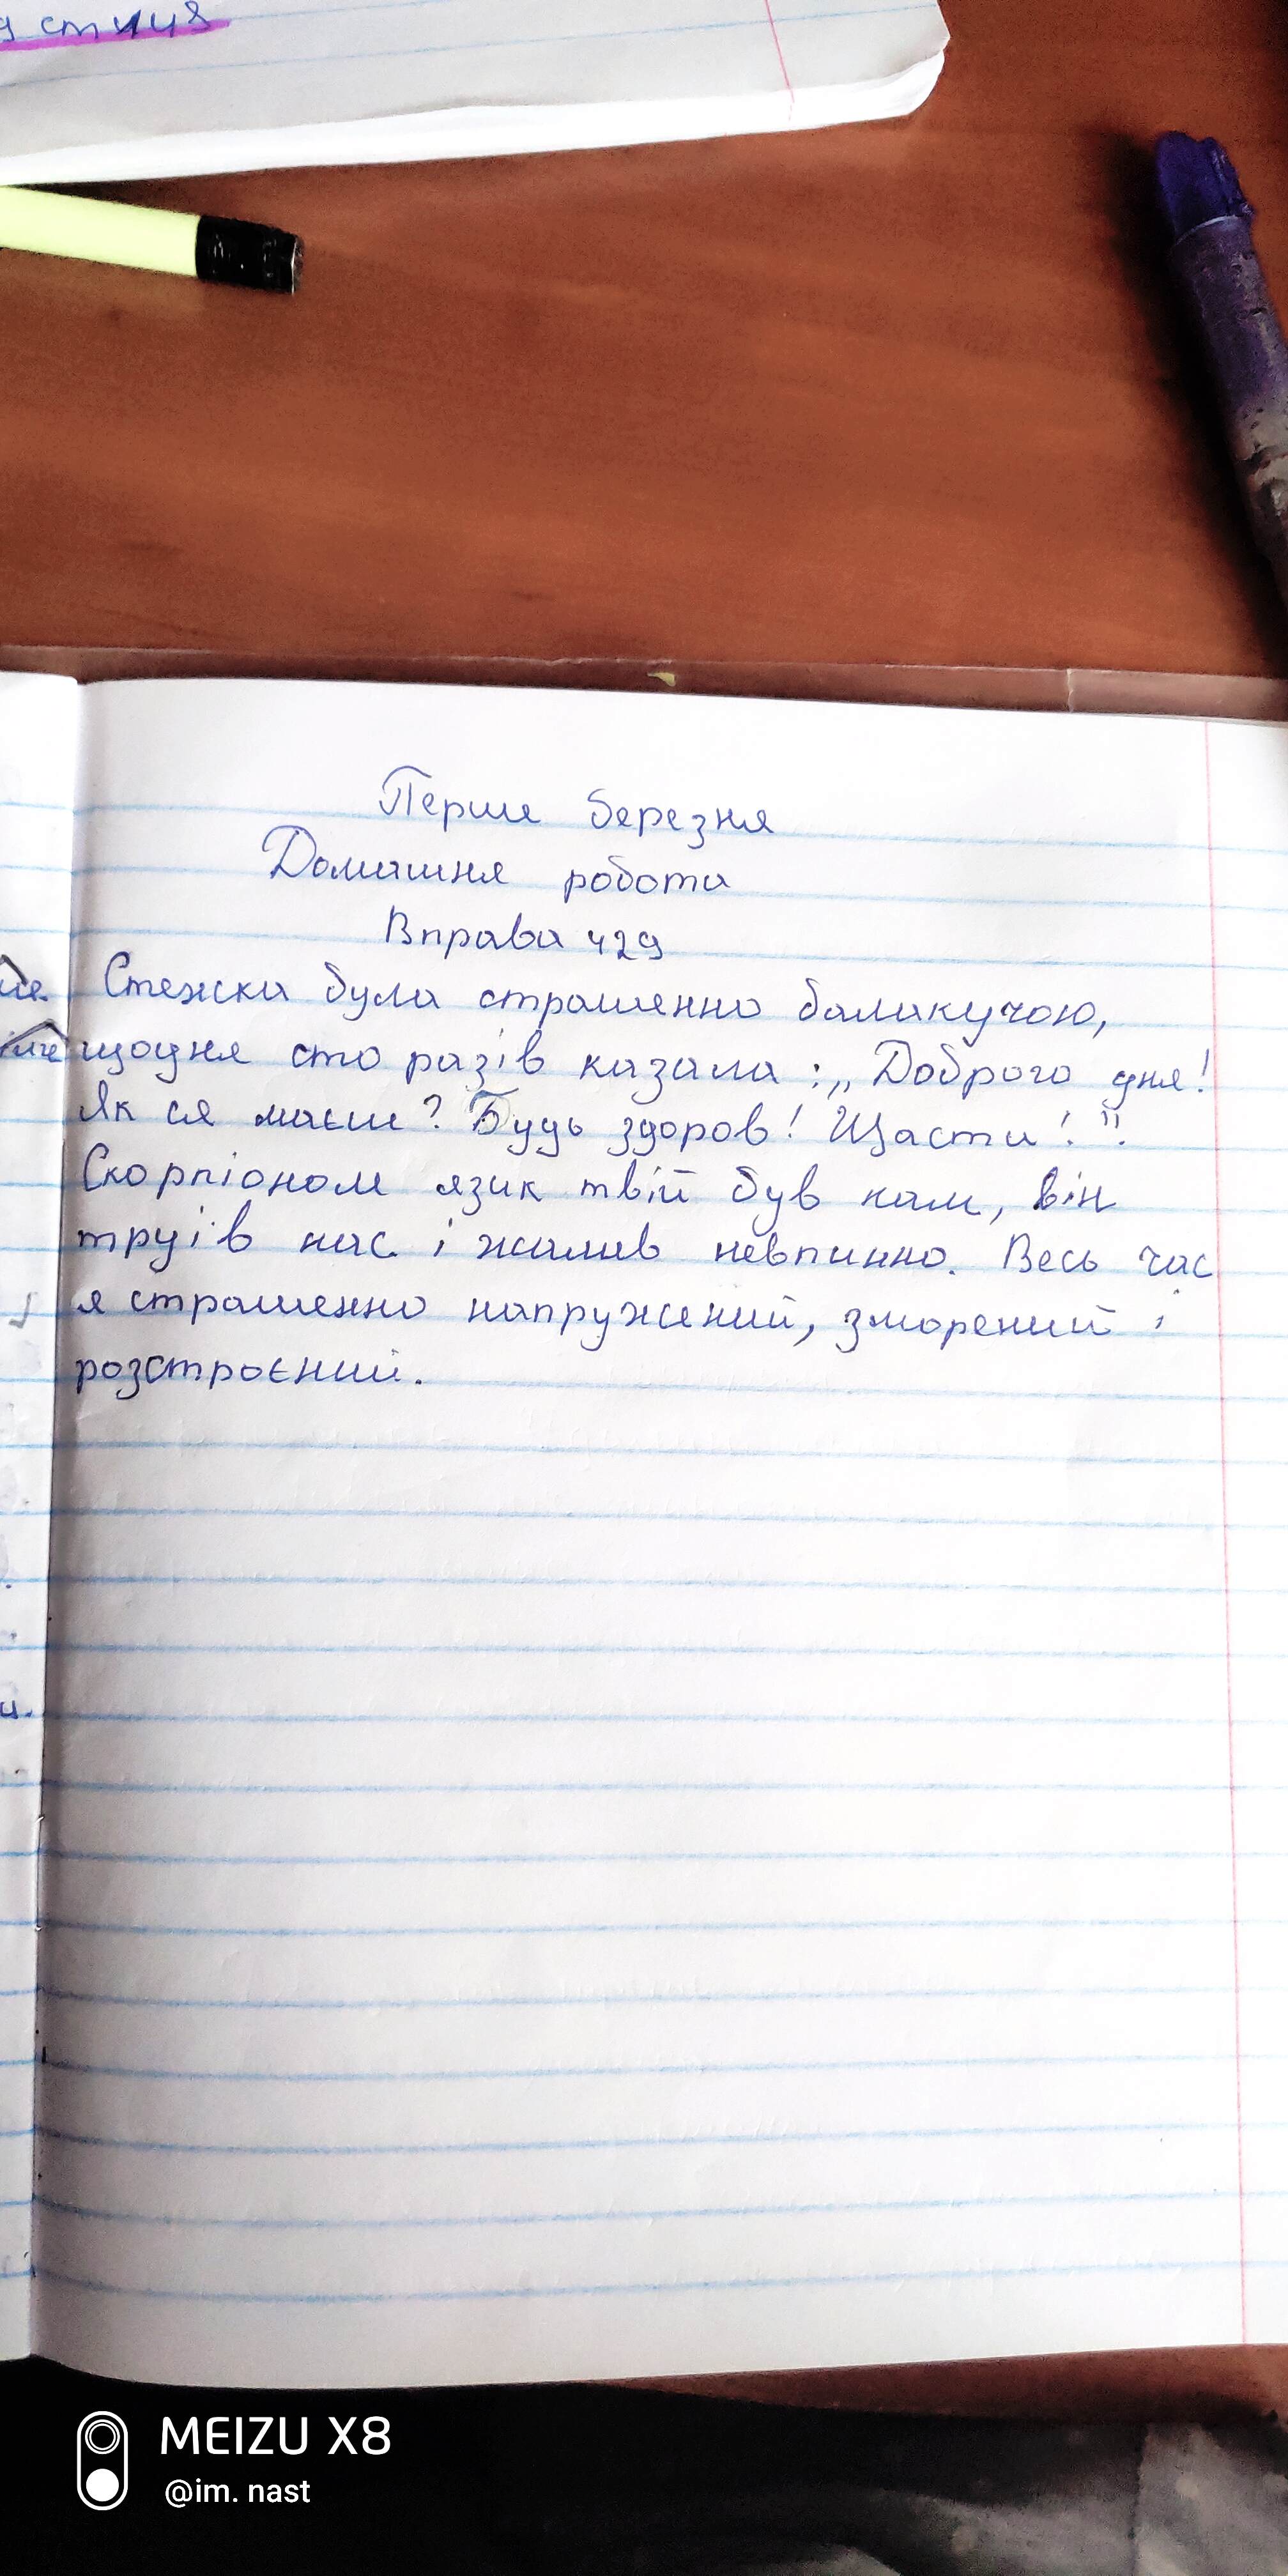 стиця
Перше березня
Домашня робота
Вправа 429
Стежка була страшенно балакучою,
щодня сто разів казала :„ Доброго дня!
Як ся маєш? Будь здоров! Щасти!".
Скорпіоном язик твій був нам, він
труїв нас і жалив невпинно. Весь час
я страшенно напружений, зморений і
розстроєний.
MEIZU X8
@im. nast